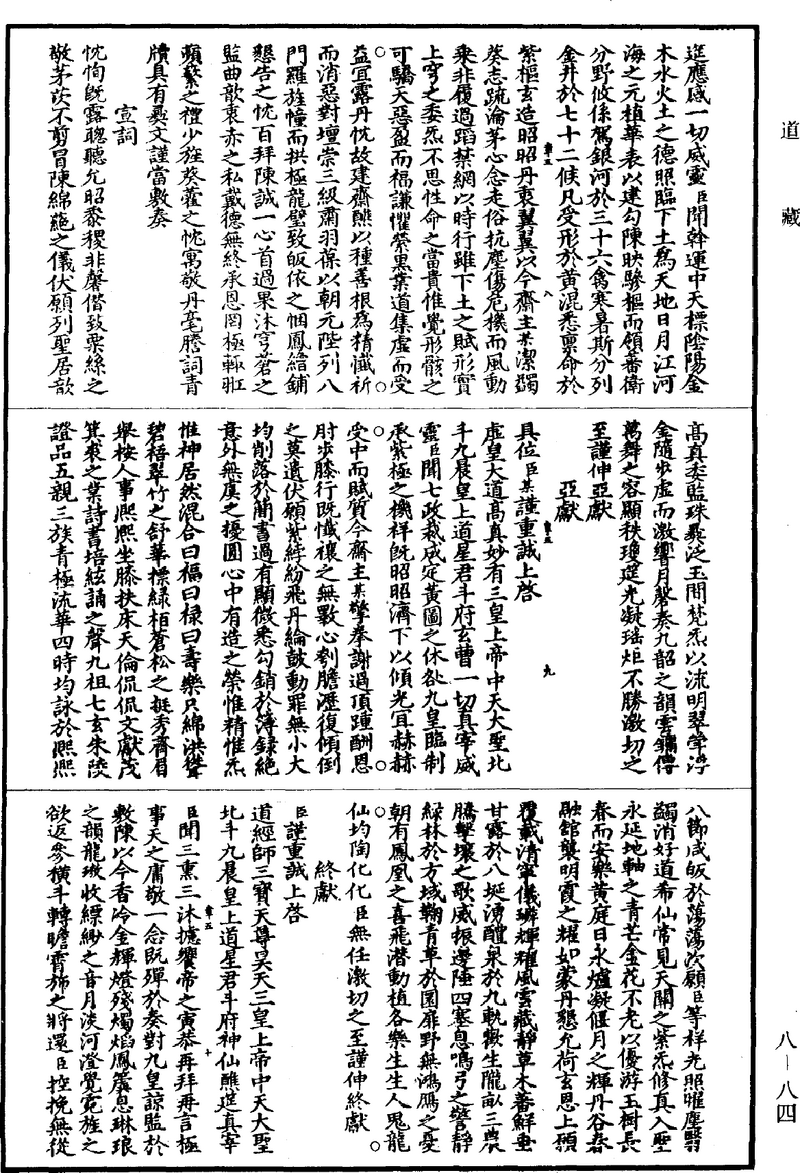 道藏
筵應感一切威靈臣聞斡運中天標陰陽金
木水火土之德照臨下土為天地日月江河
海之元植華表以建勾陳映驂樞而領蕃衛
分野攸係駕銀河於三十六禽寒暑斯分列
金井於七十二候凡受形於黃混悉稟命於
紫樞玄造昭昭丹衷翼翼以今齋主某潔蠲
葵志疏瀹茅心念走俗抗塵傷危機而風動
乘非履過蹈禁網以時行雖下土之賦形實
上穹之委炁不思性命之當貴惟覺形骸之
可驕天惡盈而福謙懼縈黑業道集虛而受
益宜露丹忱故建齋醮以種善根為精懺祈
而消惡對壇崇三級肅羽葆以朝元陛列八
門羅旌幢而拱極龍璧致皈依之悃鳳繒鋪
懇告之忱百拜陳誠一心首過果沐穹蒼之
監曲歆衷赤之私戴德無終承恩罔極輒駈
蘋蘩之禮少旌葵藿之忱寓敬丹毫謄詞青
牘具有彝文謹當敷奏
宣詞
忱恂既露聰聽允昭黍稷非馨偕致棗絲之
敬茅茨不剪冒陳綿蕝之儀伏願列聖居歆
高真委監珠彝泛玉間梵炁以流明翠聲浮
金隨步虛而激響月磬奏九韶之韻雲鏞傳
萬舞之容顯秩瓊筵光凝瑤炬不勝激切之
至謹伸亞獻
亞獻
具位臣某謹重誠上啓
虛皇大道高真妙有三皇上帝中天大聖北
斗九晨皇上道星君斗府玄曹一切真宰威
靈臣聞七政裁成定黃圖之休咎九皇臨制
承紫極之機祥既昭昭濟下以傾光冝赫赫
受中而賦質今齋主某擎拳謝過頂踵酬恩
肘步膝行既懺禳之無斁心刳膽瀝復傾倒
之莫遺伏願紫綍紛飛丹綸鼓動罪無小大
均削落於簡書過有顯微悉勾銷於簿録絕
意外無虞之擾圓心中有造之榮惟精惟炁
惟神居然混合曰福曰祿曰壽樂只綿洪聳
碧梧翠竹之舒華標綠栢蒼松之挺秀齊眉
舉桉人事熙熙坐膝扶床天倫侃侃文獻茂
箕裘之業詩書培絃誦之聲九祖七玄朱陵
證品五親三族青極流華四時均詠於熙熙
八節咸皈於蕩蕩次願臣等祥光照曜塵翳
蠲消好道希仙常見天關之紫炁修真入聖
永延地軸之青芒金花不老以優游玉樹長
春而安樂黃庭日永爐凝偃月之輝丹谷春
融館襲明霞之耀如蒙丹懇允荷玄恩上願
覆載清寧儀璘輝耀風雲藏靜草木蕃鮮垂
甘露於八埏湧醴泉於九軌歡生隴畝三農
騰擊壤之歌威振邊陲四塞息鳴弓之警靜
綠林於方域鞠青草於圜扉野無鴻鴈之憂
朝有鳳凰之喜飛潛動植各樂生生人鬼龍
仙均陶化化臣無任激切之至謹伸終獻
終獻
臣謹重誠上啓
道經師三寶天尊昊天三皇上帝中天大聖
北斗九晨皇上道星君斗府神仙醮筵真宰
臣聞三熏三沐摅饗帝之寅恭再拜再言極
事天之庸敬一念既殫於奏對九皇諒監於
敷陳以今香冷金貎燈殘燭焰鳳簫息琳琅
之韻龍璈收縹緲之音月淡河澄覺霓旌之
欲返參橫斗轉瞻霄斾之將還臣控挽無從
八—八四